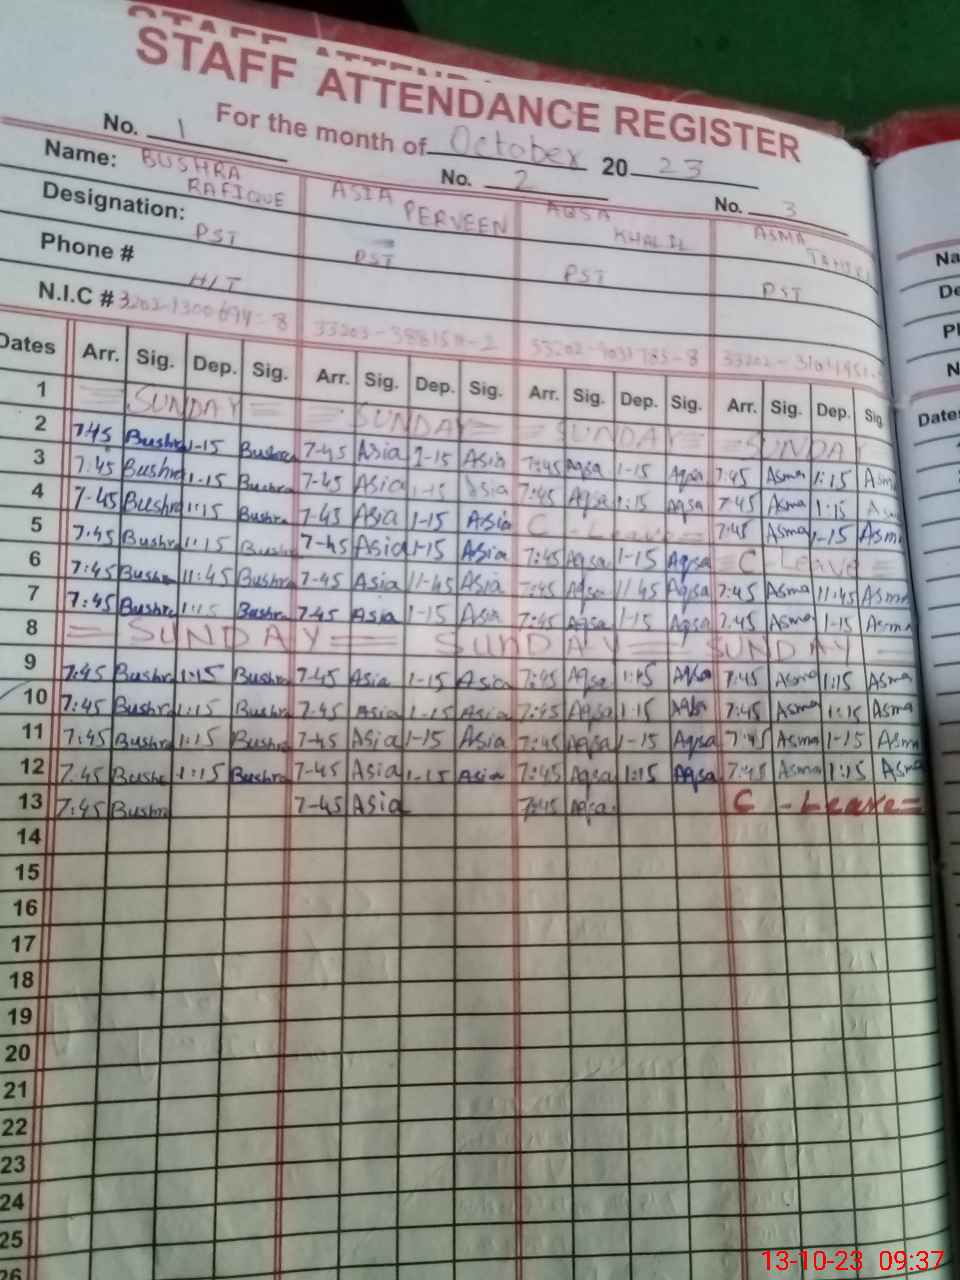 STAFF ATTENDANCE REGISTER
For the month of October 2023
No. 1 No. 2 No. 3
Name: BUSHRA RAFIQUE ASIA PERVEEN AQSA KHALIL ASMA
Designation: PST PST PST PST
Phone #
N.I.C #
Dates Arr. Sig. Dep. Sig. Arr. Sig. Dep. Sig. Arr. Sig. Dep. Sig. Arr. Sig. Dep. Sig
1 = SUNDAY = = SUNDAY = = SUNDAY = = SUNDAY
2 7:45 Bushra 1-15 Bushra 7-45 Asia 1-15 Asia 7:45 Aqsa 1-15 Aqsa 7:45 Asma 1:15 Asma
3 7:45 Bushra 1-15 Bushra 7-45 Asia 1-15 Asia 7:45 Aqsa 1:15 Aqsa 7:45 Asma 1:15 Asma
4 7-45 Bushra 1:15 Bushra 7-45 Asia 1-15 Asia C - Leave = 7:45 Asma 1-15 Asma
5 7:45 Bushra 1:15 Bushra 7-45 Asia 1-15 Asia 7:45 Aqsa 1-15 Aqsa = C - Leave =
6 7:45 Bushra 11:45 Bushra 7-45 Asia 11-45 Asia 7:45 Aqsa 11 45 Aqsa 7:45 Asma 11:45 Asma
7 7:45 Bushra 1:15 Bushra 7-45 Asia 1-15 Asia 7:45 Aqsa 1-15 Aqsa 7:45 Asma 1-15 Asma
8 = SUNDAY = SUNDAY = SUNDAY =
9 7:45 Bushra 1:15 Bushra 7-45 Asia 1-15 Asia 7:45 Aqsa 1:15 Aqsa 7:45 Asma 1:15 Asma
10 7:45 Bushra 1:15 Bushra 7-45 Asia 1-15 Asia 7:45 Aqsa 1:15 Aqsa 7:45 Asma 1:15 Asma
11 7:45 Bushra 1:15 Bushra 7-45 Asia 1-15 Asia 7:45 Aqsa 1-15 Aqsa 7:45 Asma 1-15 Asma
12 7:45 Bushra 1:15 Bushra 7-45 Asia 1-15 Asia 7:45 Aqsa 1:15 Aqsa 7:45 Asma 1:15 Asma
13 7:45 Bushra 7-45 Asia 7:45 Aqsa C - Leave =
14
15
16
17
18
19
20
21
22
23
24
25
26
13-10-23 09:37